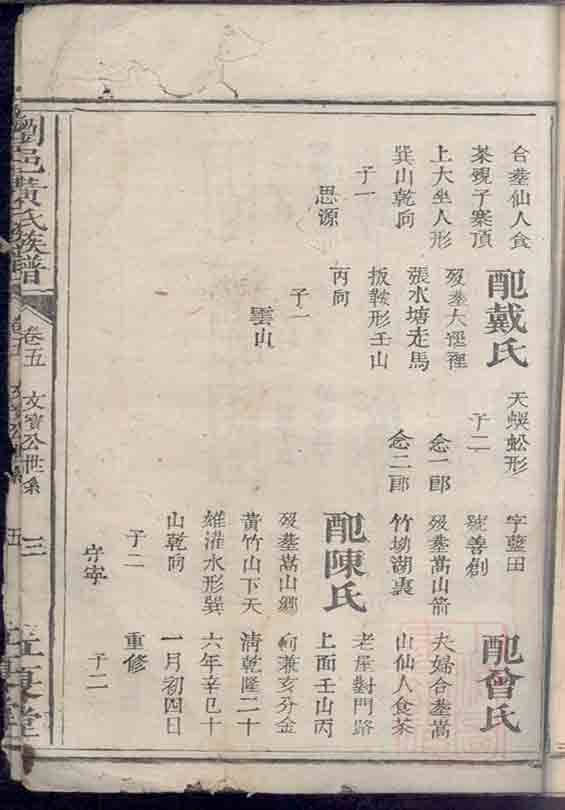 合塟仙人食
茶硯子案頂
上大坐人形
巽山乾向
子一
思源
配戴氏
歿塟大𨓜裡
張水塘走馬
扳鞍形壬山
丙向
子一
雲山
天蜈蚣形
子二
念一郎
念二郎
字藍田
號善創
歿塟嵩山箭
竹坳湖裏
配陳氏
歿塟嵩山鄉
黃竹山下天
維灌水形巽
山乾向
子二
守寜
配曾氏
夫婦合塟嵩
山仙人食茶
老屋對門路
上面壬山丙
向兼亥分金
淸乾隆二十
六年辛巳十
一月初四日
重修
子二
瀏邑黃氏族譜
卷五
文寳公世系
三